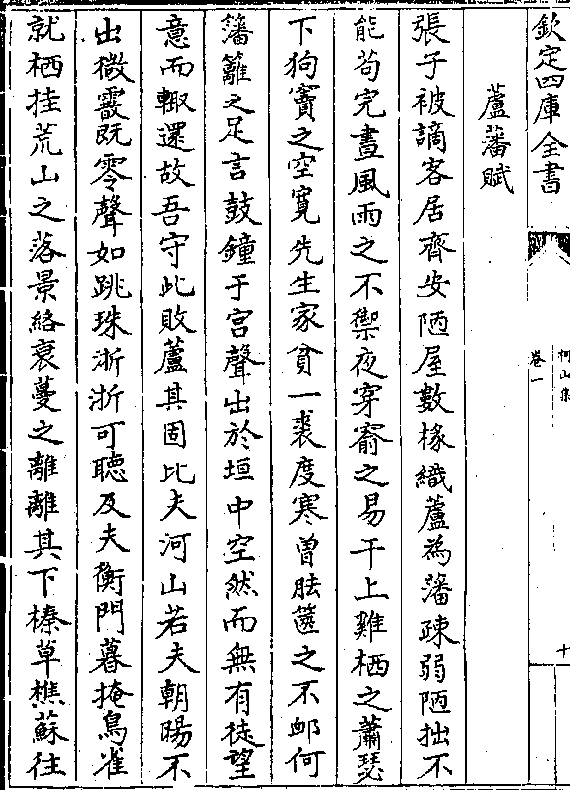 欽定四庫全書
柯山集
卷一
十
蘆藩賦
張子被謫客居齊安陋屋數椽織蘆為藩疎弱陋拙不
能苟完晝風雨之不禦夜穿窬之易干上雞栖之蕭瑟
下狗竇之空寛先生家貧一裘度寒曽胠篋之不䘏何
藩籬之足言鼓鐘于宫聲出於垣中空然而無有徒望
意而輙還故吾守此敗蘆其固比夫河山若夫朝暘不
出微霰既零聲如跳珠淅淅可聽及夫衡門暮掩鳥雀
就栖挂荒山之落景絡衰蔓之離離其下榛草樵蘇往